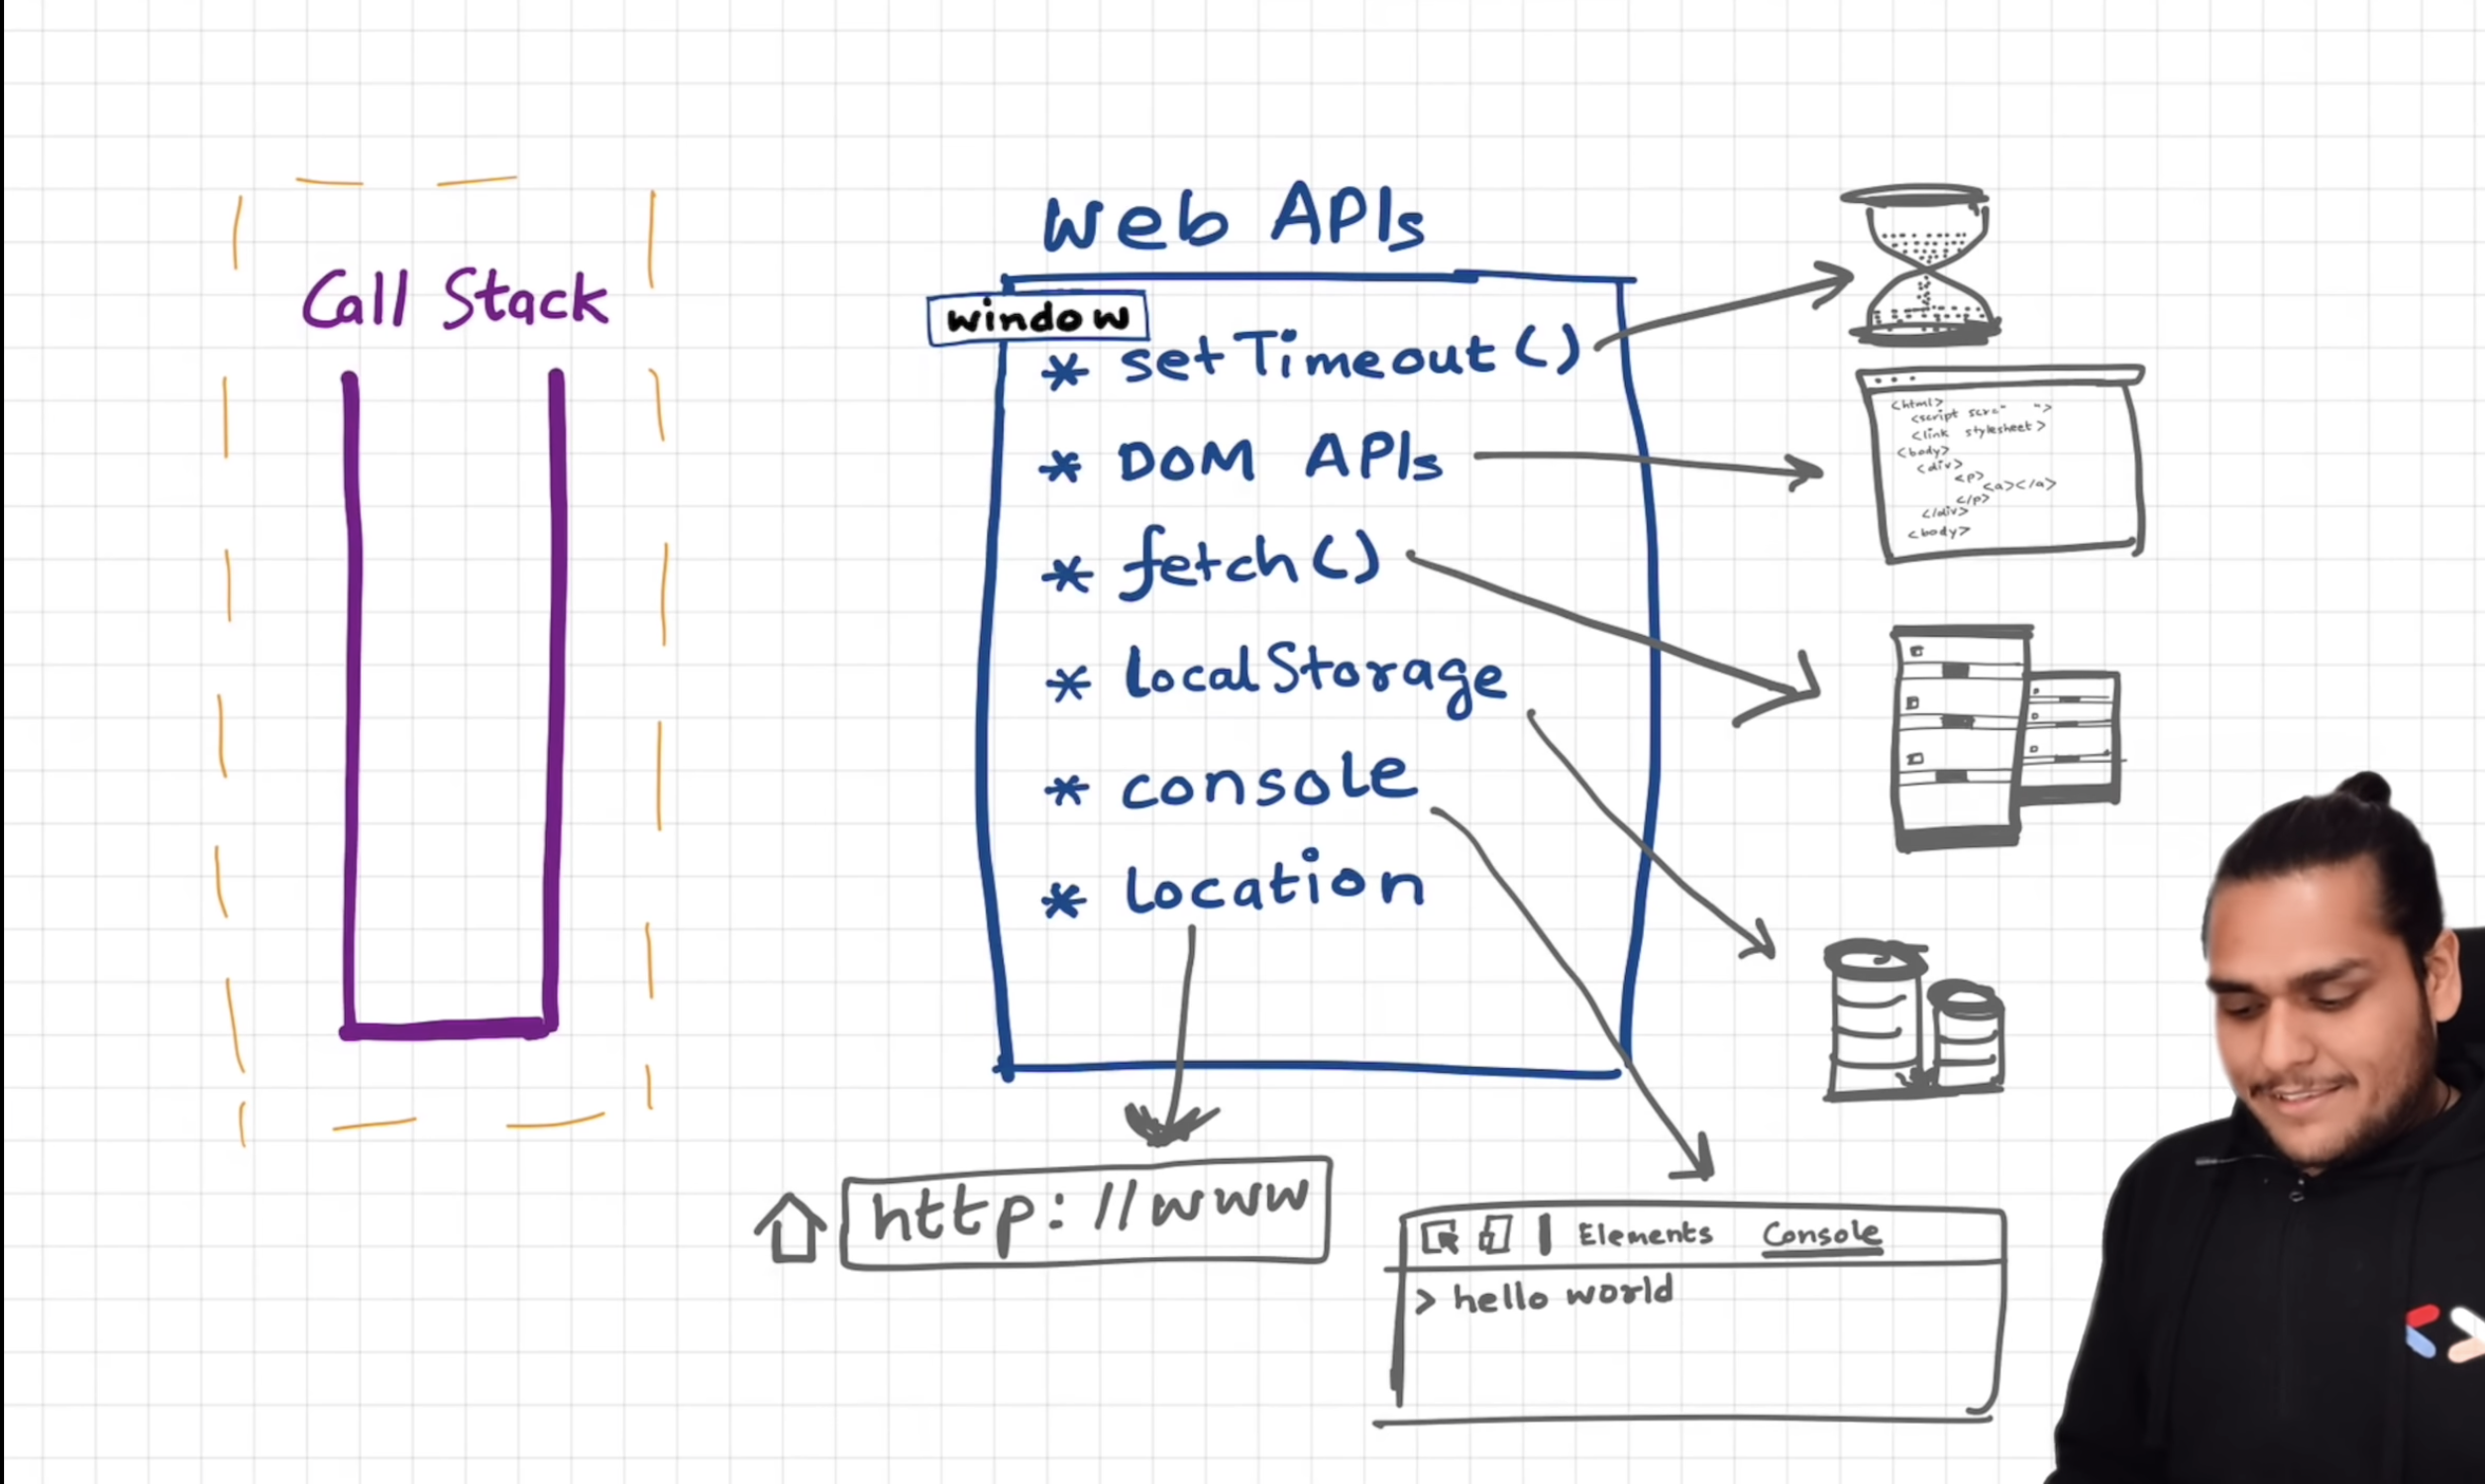 Call Stack
Web APIs
window
* setTimeout()
* DOM APIs
* fetch()
* localStorage
* console
* location
<html>
<script scrc" ">
<link stylesheet>
<body>
<div>
<p>
<a></a>
</p>
</div>
<body>
http://www
Elements Console
> hello world